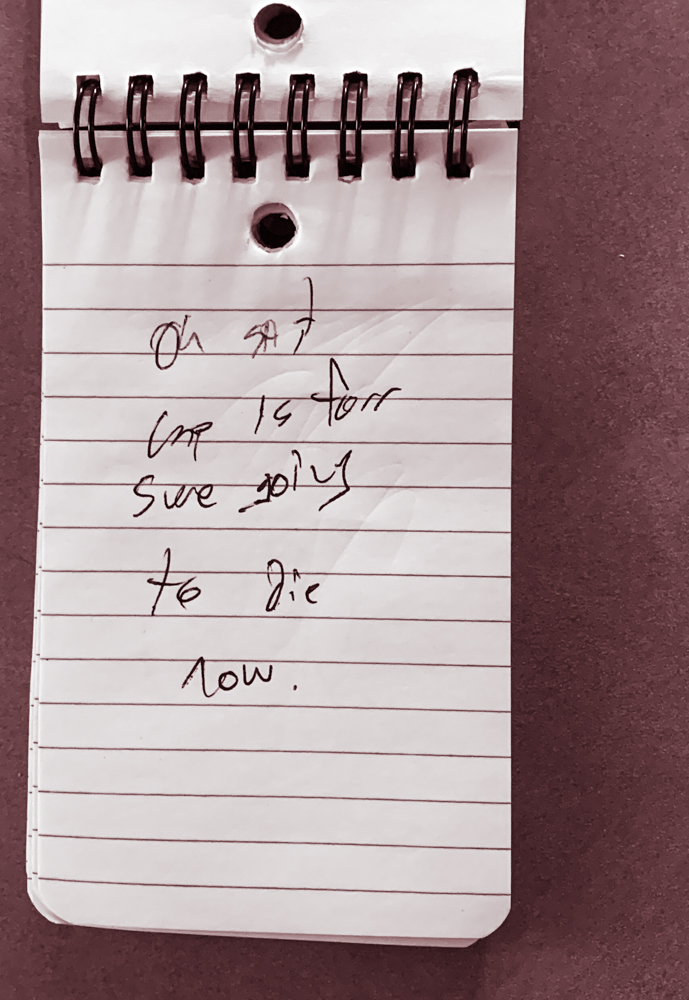 Oh
is forr
sure going
to die
now.